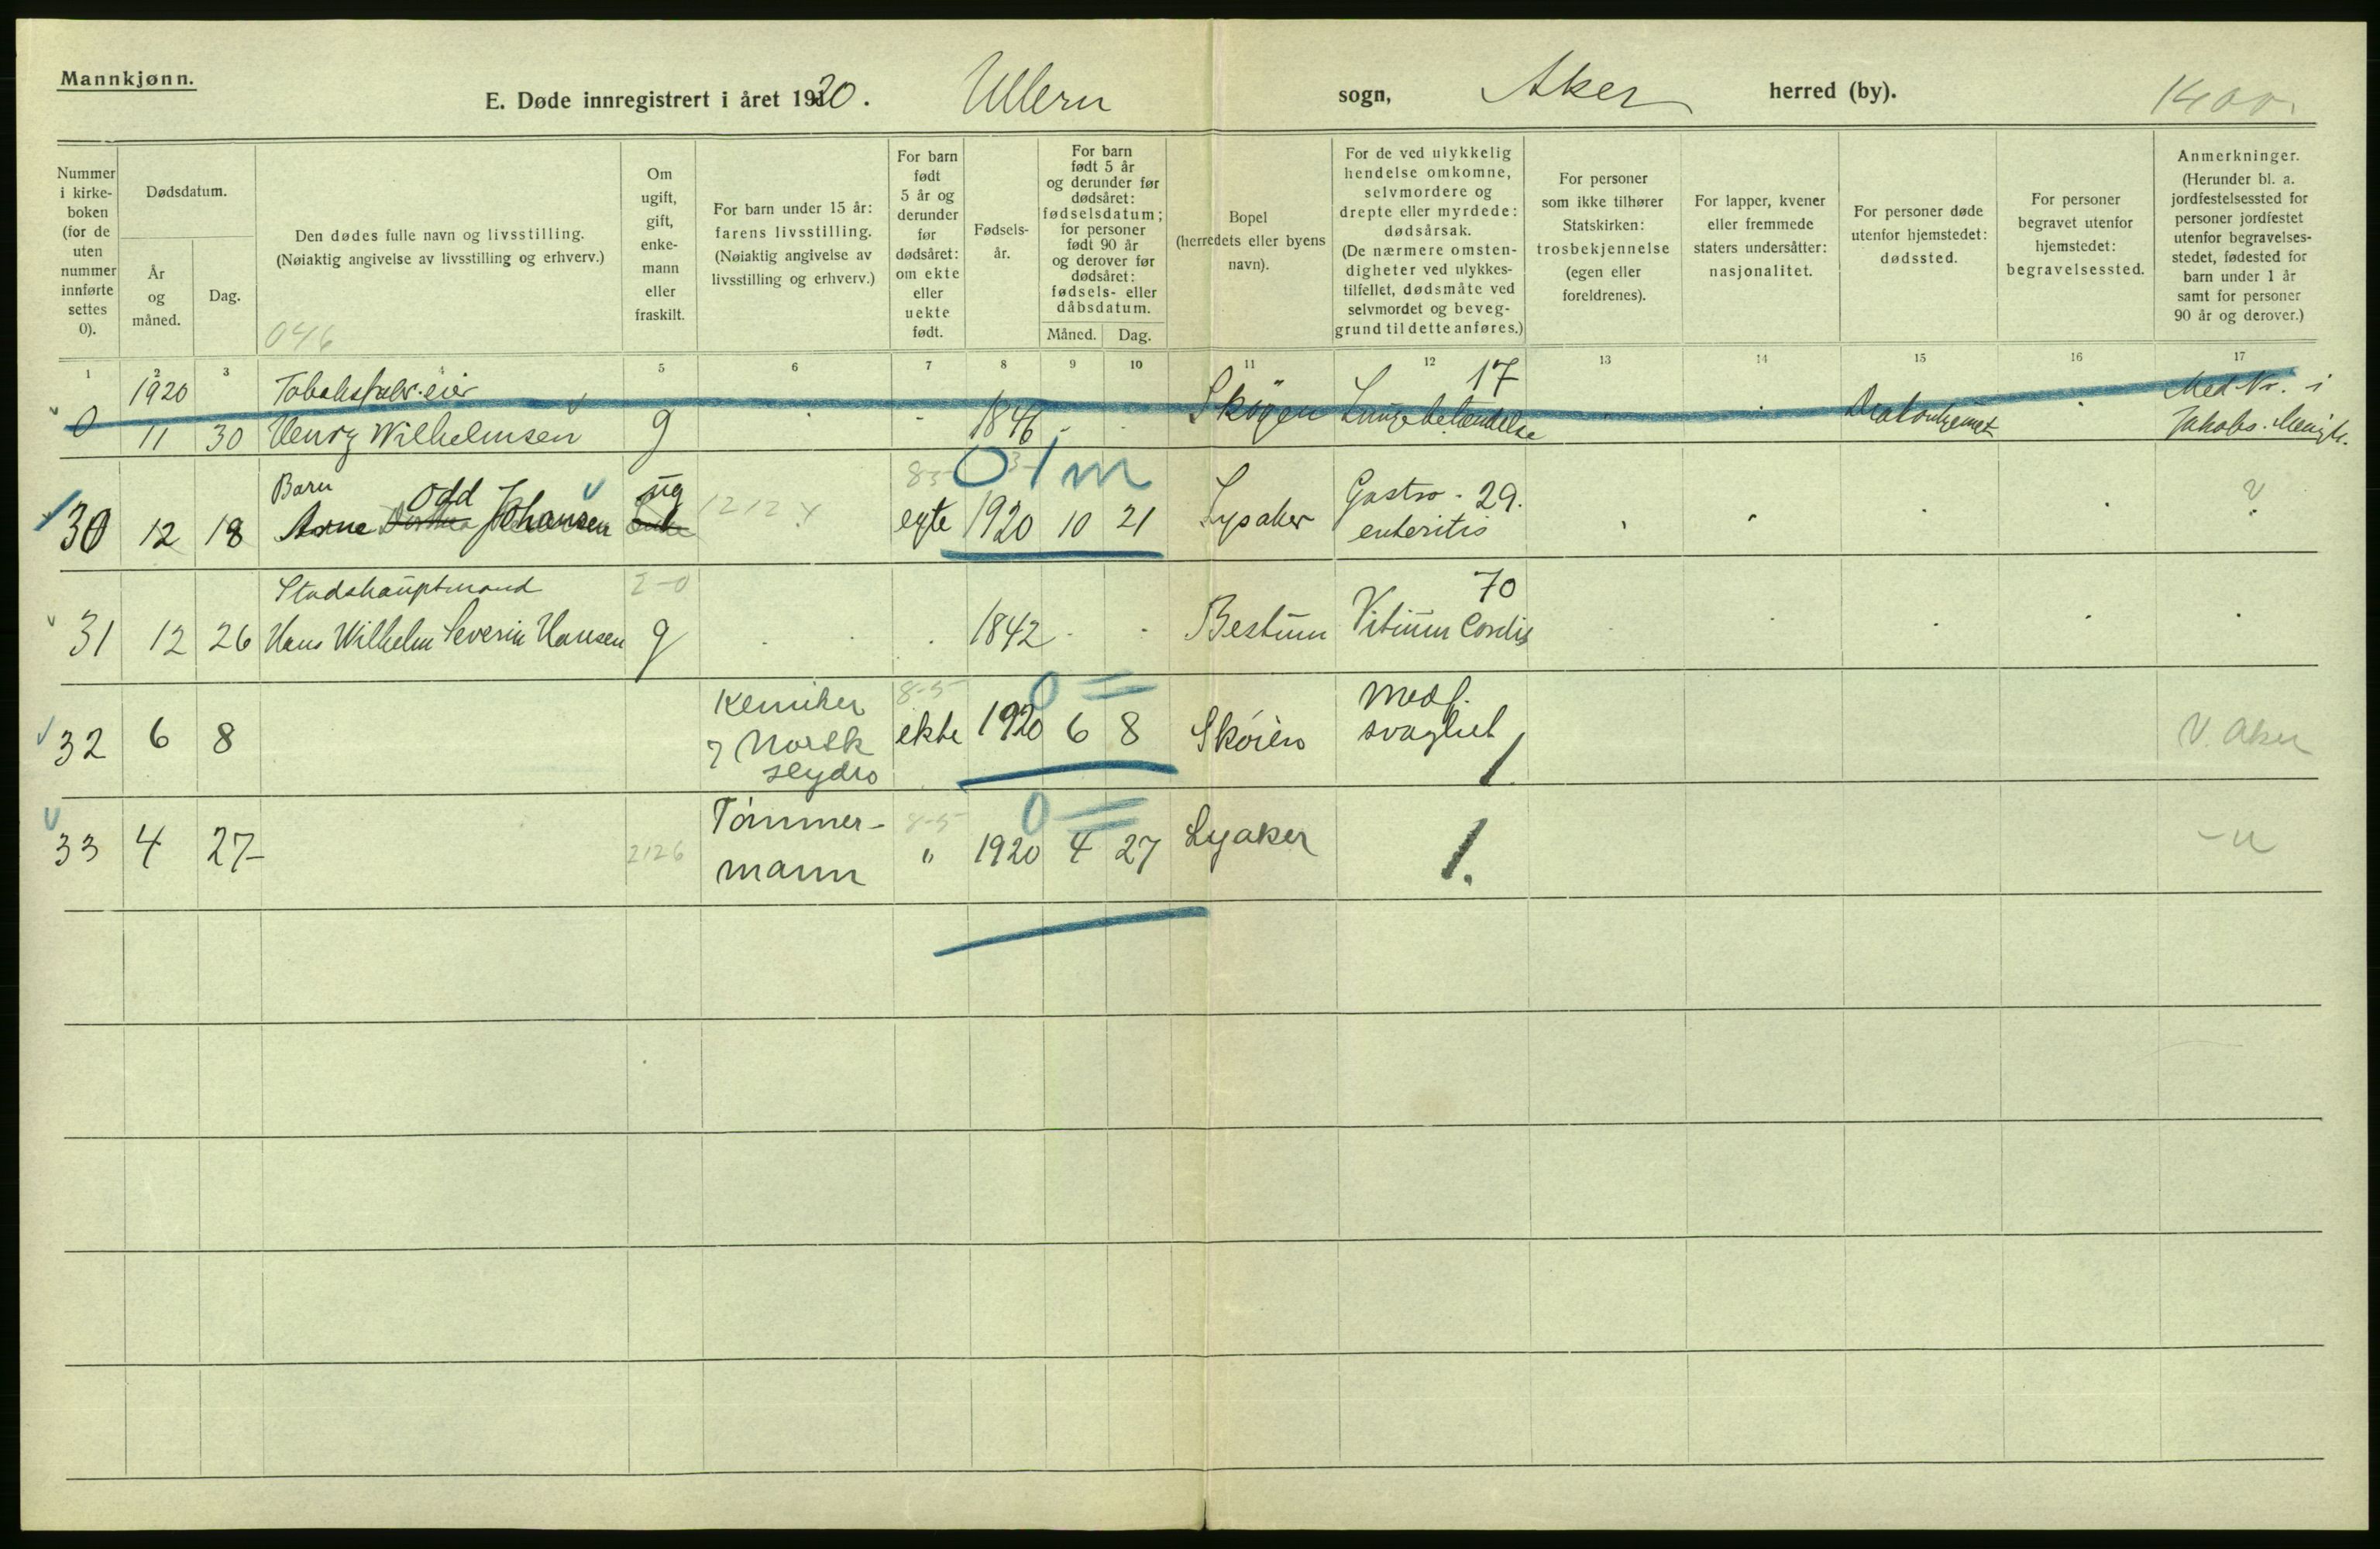 Mannkjønn.
E. Døde innregistrert i året 1920. Ullern sogn, Aker herred (by). 1400.
Nummer
i kirke-
boken
(for de
uten
nummer
innførte
settes
0).
Dødsdatum.
År
og
måned.
Dag.
Den dødes fulle navn og livsstilling.
(Nøiaktig angivelse av livsstilling og erhverv.)
046
Om
ugift,
gift,
enke-
mann
eller
fraskilt.
For barn under 15 år:
farens livsstilling.
(Nøiaktig angivelse av
livsstilling og erhverv.)
For barn
født
5 år og
derunder
før
dødsåret:
om ekte
eller
uekte
født.
Fødsels-
år.
For barn
født 5 år
og derunder før
dødsåret:
fødselsdatum;
for personer
født 90 år
og derover før
dødsåret:
fødsels- eller
dåbsdatum.
Måned. Dag.
Bopel
(herredets eller byens
navn).
For de ved ulykkelig
hendelse omkomne,
selvmordere og
drepte eller myrdede:
dødsårsak.
(De nærmere omsten-
digheter ved ulykkes-
tilfellet, dødsmåte ved
selvmordet og beveg-
grund til dette anføres.)
For personer
som ikke tilhører
Statskirken:
trosbekjennelse
(egen eller
foreldrenes).
For lapper, kvener
eller fremmede
staters undersåtter:
nasjonalitet.
For personer døde
utenfor hjemstedet:
dødssted.
For personer
begravet utenfor
hjemstedet:
begravelsessted.
Anmerkninger.
(Herunder bl. a.
jordfestelsessted for
personer jordfestet
utenfor begravelses-
stedet, fødested for
barn under 1 år
samt for personer
90 år og derover.)
1 2 3 4 5 6 7 8 9 10 11 12 13 14 15 16 17
1920 Tobaksfabr.eier 17 Med Nr. i
0 11 30 Henry Wilhelmsen g - 1846 - - Skøyen Lungebetændelse Diakonhjemmet Jakobs. Menigh.
Barn Odd ug 83 0 1 m Gastro- 29. ?
30 12 18 Arne Johansen 1212 egte 1920 10 21 Lysaker enteritis
Stadshauptmand 2-0 70
31 12 26 Hans Wilhelm Severin Hansen g 1842 - - Bestum Vitium Cordis
Kemiker 8-5 0 = Medf.
32 6 8 Norsk ekte 1920 6 8 Skøien svaghet V. Aker
Hydro 1
Tømmer- 8-5 0 =
33 4 27 2126 mann " 1920 4 27 Lyaker 1. -"